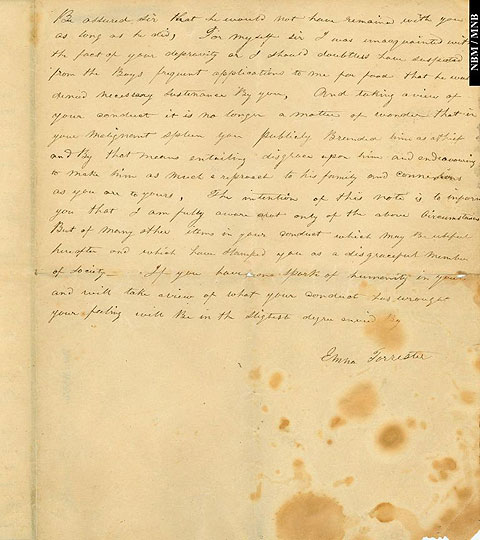 Be assured Sir that he would not have remained with you
as long as he did, For myself sir I was unacquainted with
the fact of your depravity or I should doubtless have suspected
from the Boys frequent applications to me for food that he was
denied necessary sustenance By you, And taking a view of
your conduct it is no longer a matter of wonder that in
your malignant spleen you publicly Branded him as a thief
and By that means entailing disgrace upon him and endeavouring
to make him as much a reproach to his family and connexions
as you are to yours, The intention of this note is to inform
you that I am fully aware not only of the above Circumstances
But of many other items in your conduct which may Be useful
hereafter and which have stamped you as a disgraceful member
of society— If you have one spark of humanity in you
and will take a view of what your conduct has wrought
your feeling will Be in the sligtest degree By
Emma Forrester
NBM / MNB